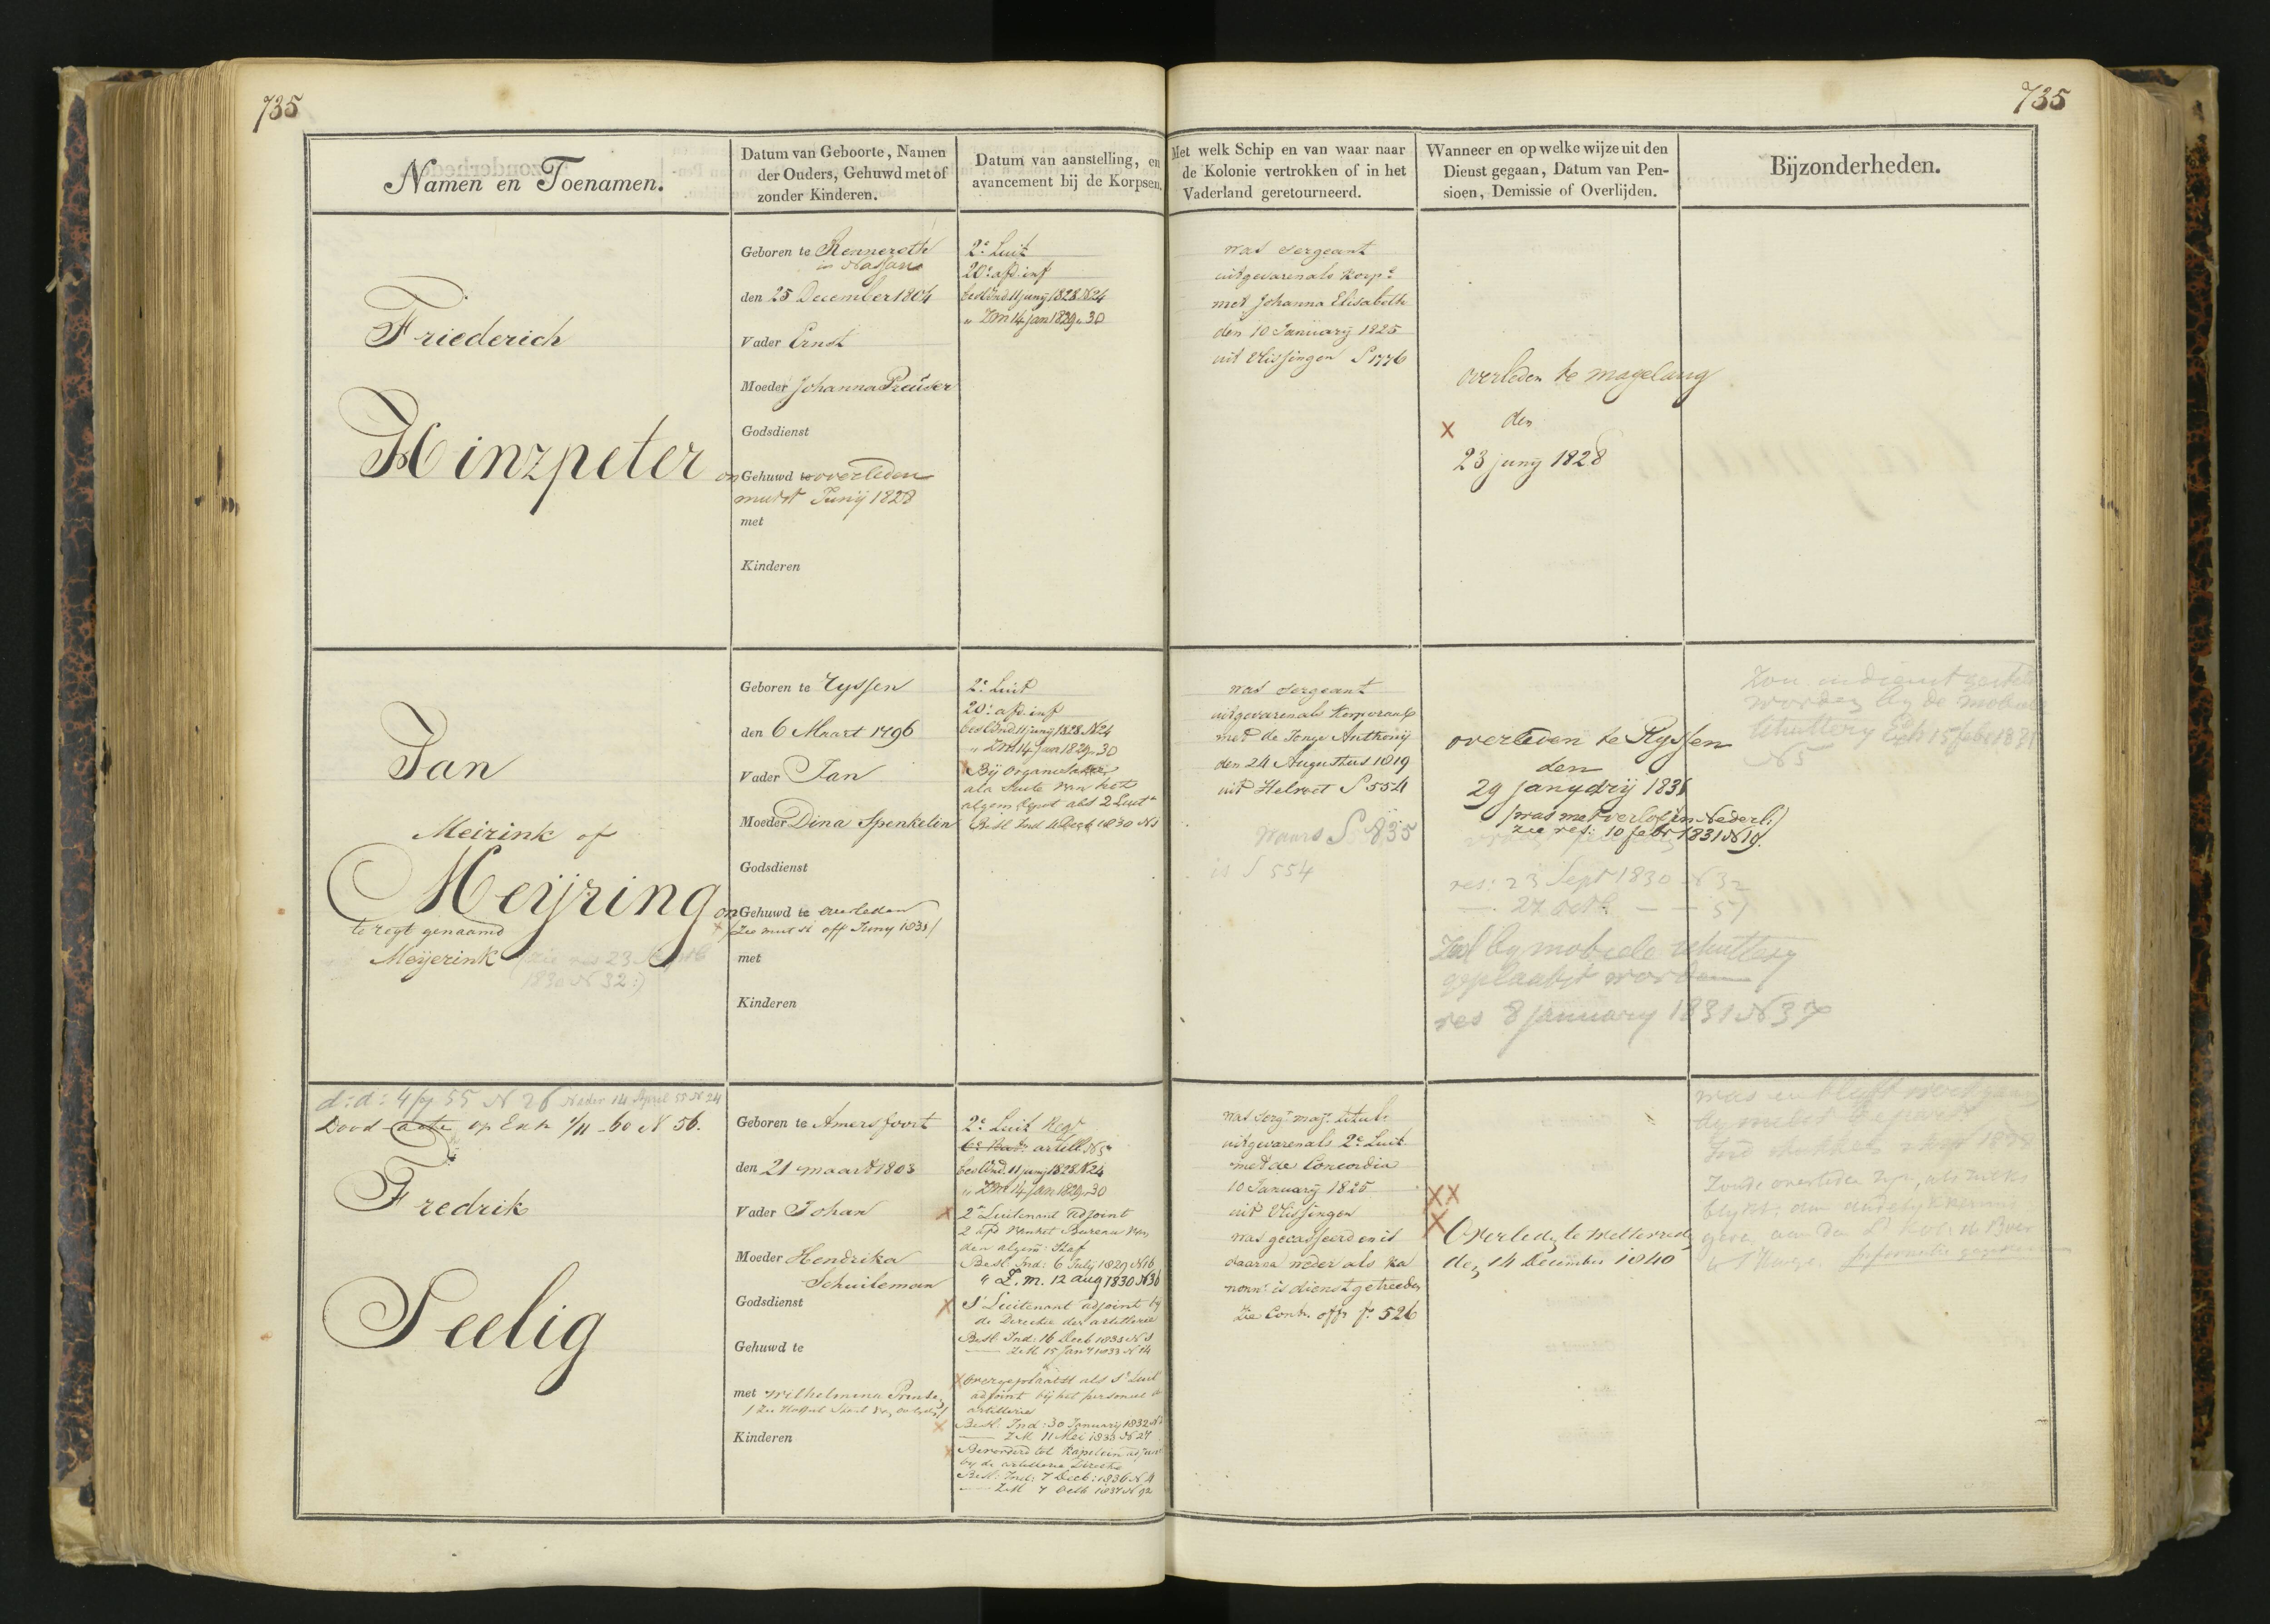 735
735
Namen en Toenamen.
Datum van Geboorte, Namen
der Ouders, Gehuwd met of
zonder Kinderen.
Datum van aanstelling, en
avancement bij de Korpsen.
Met welk Schip en van waar naar
de Kolonie vertrokken of in het
Vaderland geretourneerd.
Wanneer en op welke wijze uit den
Dienst gegaan, Datum van Pen-
sioen, Demissie of Overlijden.
Bijzonderheden.
Friederich
Hinzpeter
Geboren te Rennerothe
in Nassau
den 25 December 1804
Vader Ernst
Moeder Johanna Preuser
Godsdienst
on Gehuwd te overleden
mutst Junij 1828
met
Kinderen
2e Luit
20e afd. inf
besl Ind. 11 junij 1828 N24
" ZM 14 jan 1829 " 30
was sergeant
uitgevaren als korpl
met Johanna Elisabeth
den 10 Januarij 1825
uit Vlissingen S 1776
overleden te magelang
den
23 junij 1828
Jan
Meirink of
Meijring
te regt genaamd
Meijerink (zie res 23 Sept
1830 N 32:)
Geboren te Ryssen
den 6 Maart 1796
Vader Jan
Moeder Dina Spenkelin
Godsdienst
on Gehuwd te overleden
/zie mut st off Juny 1831/
met
Kinderen
2e Luit
20e afd. inf
besl Ind. 11 junij 1828 N24
" ZM 14 Jan 1829 " 30
Bij Organisatie
ala Suite van het
algem depot als 2 Luit
Besl Ind 4 1830 N1
was sergeant
uitgevaren als Korporaal
met de Jonge Anthonij
den 24 Augustus 1819
uit Helvoet S 554
S 835
is S 554
overleden te Ryssen
den
29 january 1831
/was met verlof in Nederl:/
zie res: 10 febr 1831 N 19
res: 23 Sept 1830 N 32
27 Octb — — 51
Zal by mobiele schuttery
geplaatst worden
res 8 january 1831 N 37
Zou in dienst gesteld
worden by de mobiele
schuttery Exh 15 febr 1831
N5
d: d: 55 N 26 Nader 14 April 55 N 24
Dood-acte op Exh 1/11 - 60 N 56.
Fredrik
Seelig
Geboren te Amersfoort
den 21 maart 1803
Vader Johan
Moeder Hendrika
Schuileman
Godsdienst
Gehuwd te
met Wilhelmina
Kinderen
2e Luit Regt
artill N5
besl Ind. 11 junij 1828 N24
" ZM 14 jan 1829 " 30
2e Luitenant adjoint
2 afd van het Bureau van
den algem: Staf
Besl: Ind: 6 July 1829 N16
" Z. M. 12 aug 1830 N36
1e Luitenant adjoint by
de Directie der artillerie
Besl: Ind: 16 Decb N 1
ZM 15 Jany 1833 N 14
overgeplaatst als 1e Luit
adjoint bij het personeel der
artillerie
Besl: Ind: 30 January 1832 N2
ZM 11 Mei 1833 N 27
Bevorderd tot Kapitein adjoint
by de artillerie Directie
Besl: Ind: 7 Decb: 1836 N 4
ZM 7 Octb 1837 N 92
was sergt majr titul:
uitgevaren als 2e Luit.
met de Concordia
10 Januarij 1825
uit Vlissingen
was gecasseerd en is
daarna weder als ka
nonnr in dienst getreeden
zie Contr. offr fo 526
Overleden te Weltevreden
den 14 December 1840